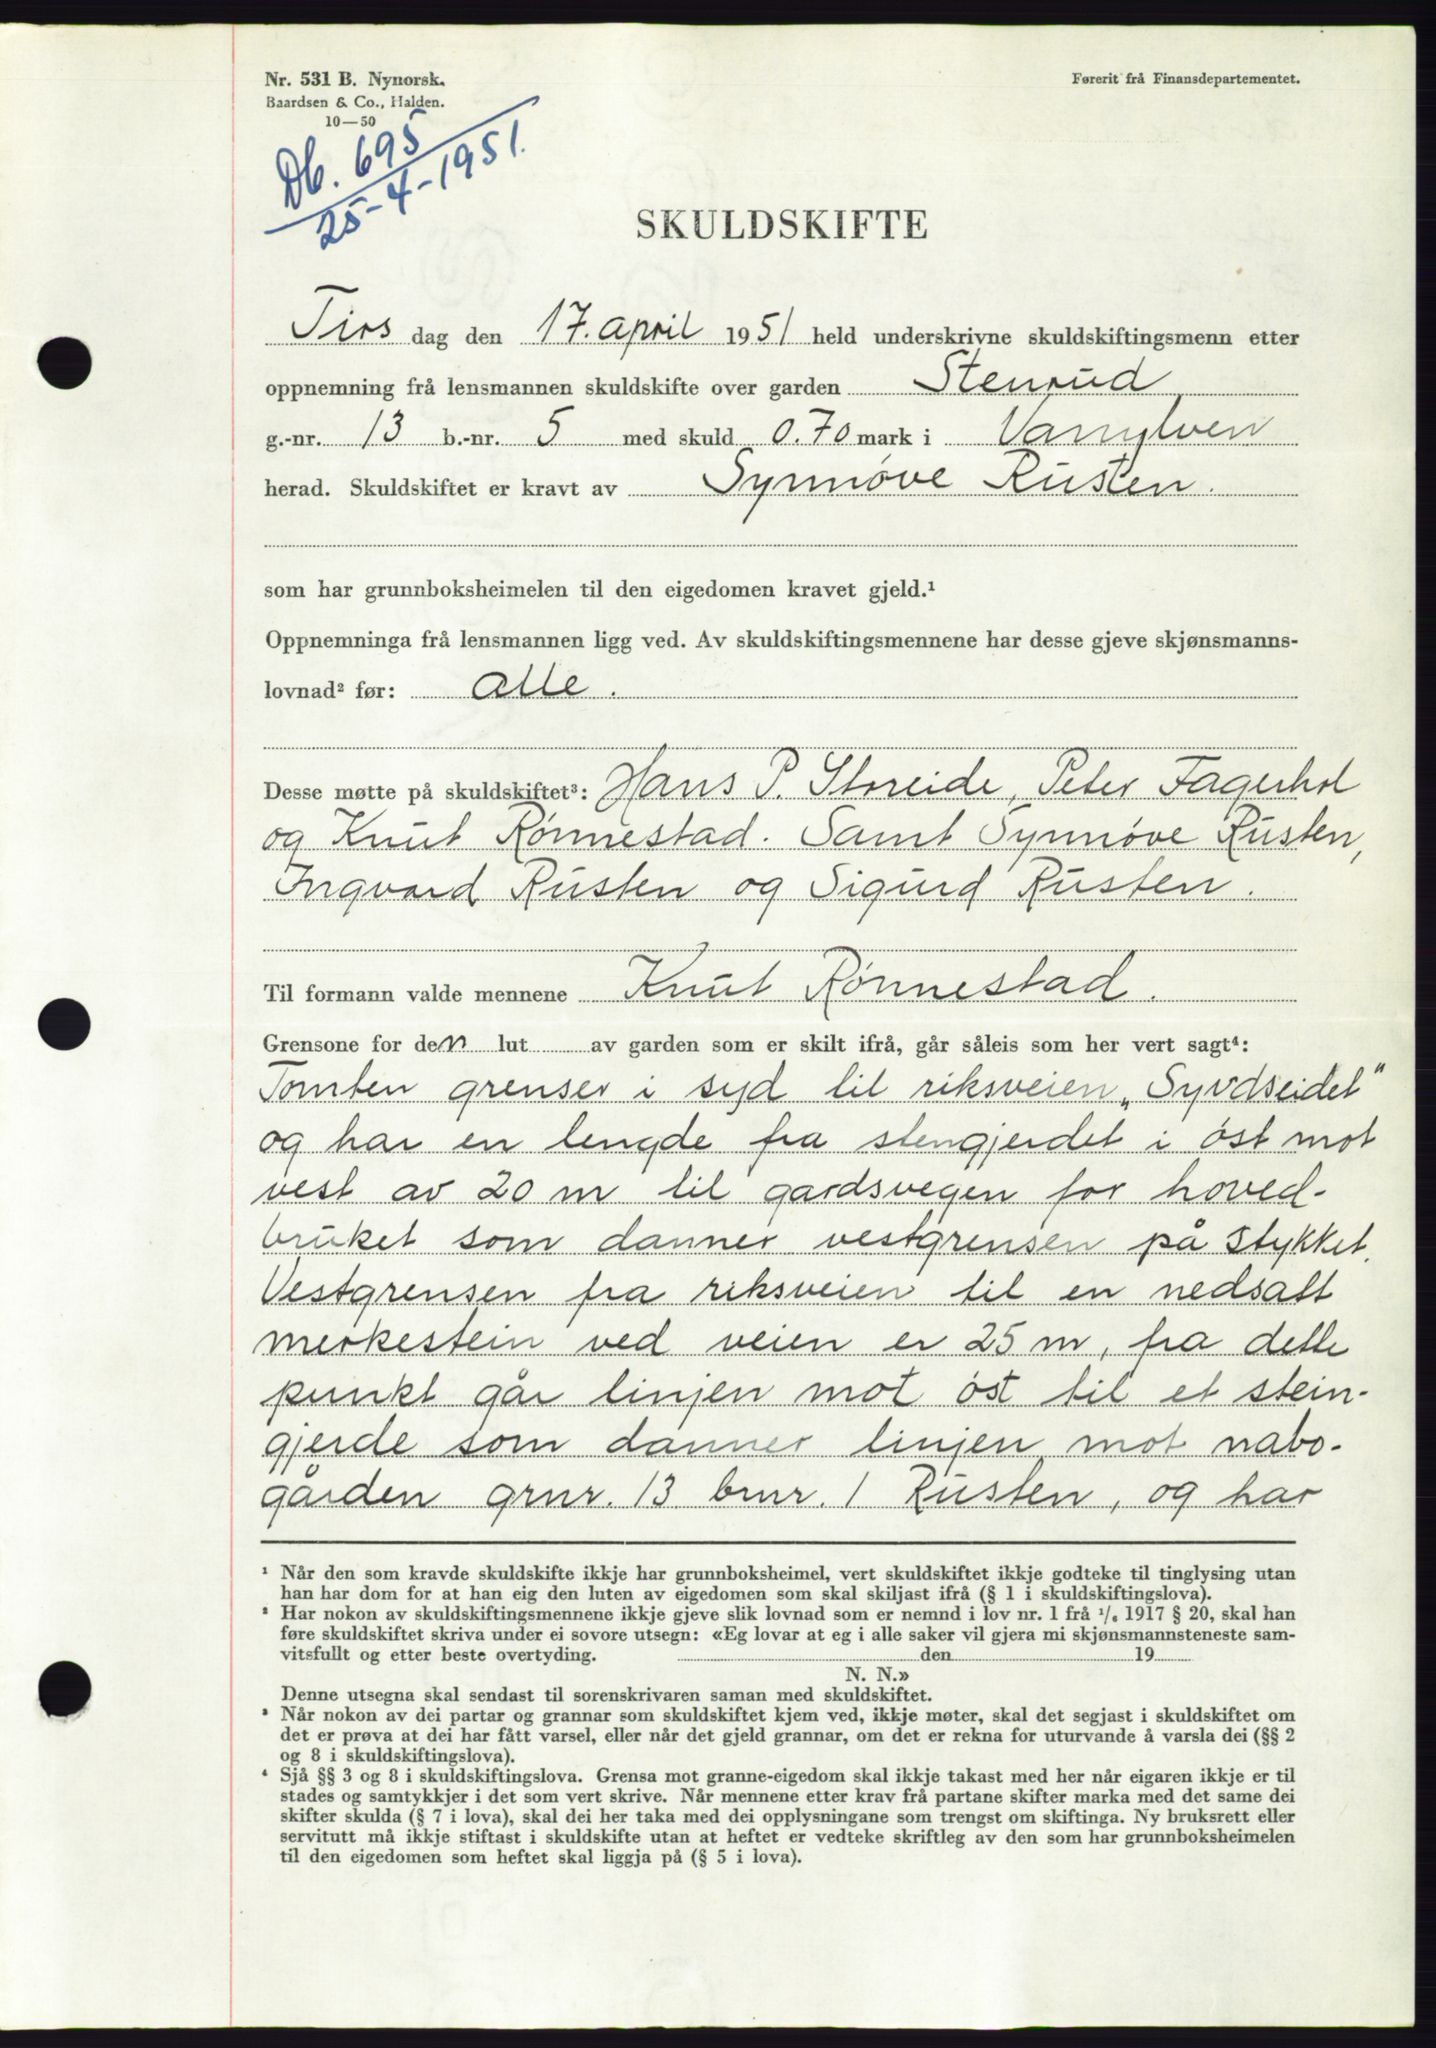 Nr. 531 B. Nynorsk.
Baardsen & Co., Halden.
10—50
Førerit frå Finansdepartementet.
Db. 695
25-4-1951.
SKULDSKIFTE
Tirs dag den 17. april 1951 held underskrivne skuldskiftingsmenn etter
oppnemning frå lensmannen skuldskifte over garden Stenrud
g.-nr. 13 b.-nr. 5 med skuld 0.70 mark i Vanylven
herad. Skuldskiftet er kravt av Synnøve Rusten.
som har grunnboksheimelen til den eigedomen kravet gjeld.¹
Oppnemninga frå lensmannen ligg ved. Av skuldskiftingsmennene har desse gjeve skjønsmanns-
lovnad² før: alle.
Desse møtte på skuldskiftet³: Hans P. Storeide, Peter Fagerhol
og Knut Rønnestad. Samt Synnøve Rusten,
Ingvard Rusten og Sigurd Rusten.
Til formann valde mennene Knut Rønnestad.
Grensone for den lut av garden som er skilt ifrå, går såleis som her vert sagt⁴:
Tomten grenser i syd til riksveien „Syvdseidet"
og har en lengde fra stengjerdet i øst mot
vest av 20 m til gardsvegen for hoved-
bruket som danner vestgrensen på stykket.
Vestgrensen fra riksveien til en nedsatt
merkestein ved veien er 25 m, fra dette
punkt går linjen mot øst til et stein-
gjerde som danner linjen mot nabo-
gården grnr. 13 bnr. 1 Rusten, og har
¹ Når den som kravde skuldskifte ikkje har grunnboksheimel, vert skuldskiftet ikkje godteke til tinglysing utan
han har dom for at han eig den luten av eigedomen som skal skiljast ifrå (§ 1 i skuldskiftingslova).
² Har nokon av skuldskiftingsmennene ikkje gjeve slik lovnad som er nemnd i lov nr. 1 frå ¹/₆ 1917 § 20, skal han
føre skuldskiftet skriva under ei sovore utsegn: «Eg lovar at eg i alle saker vil gjera mi skjønsmannsteneste sam-
vitsfullt og etter beste overtyding. den 19
N. N.»
Denne utsegna skal sendast til sorenskrivaren saman med skuldskiftet.
³ Når nokon av dei partar og grannar som skuldskiftet kjem ved, ikkje møter, skal det segjast i skuldskiftet om
det er prøva at dei har fått varsel, eller når det gjeld grannar, om det er rekna for uturvande å varsla dei (§§ 2
og 8 i skuldskiftingslova).
⁴ Sjå §§ 3 og 8 i skuldskiftingslova. Grensa mot granne-eigedom skal ikkje takast med her når eigaren ikkje er til
stades og samtykkjer i det som vert skrive. Når mennene etter krav frå partane skifter marka med det same dei
skifter skulda (§ 7 i lova), skal dei her taka med dei opplysningane som trengst om skiftinga. Ny bruksrett eller
servitutt må ikkje stiftast i skuldskifte utan at heftet er vedteke skriftleg av den som har grunnboksheimelen
til den eigedomen som heftet skal liggja på (§ 5 i lova).